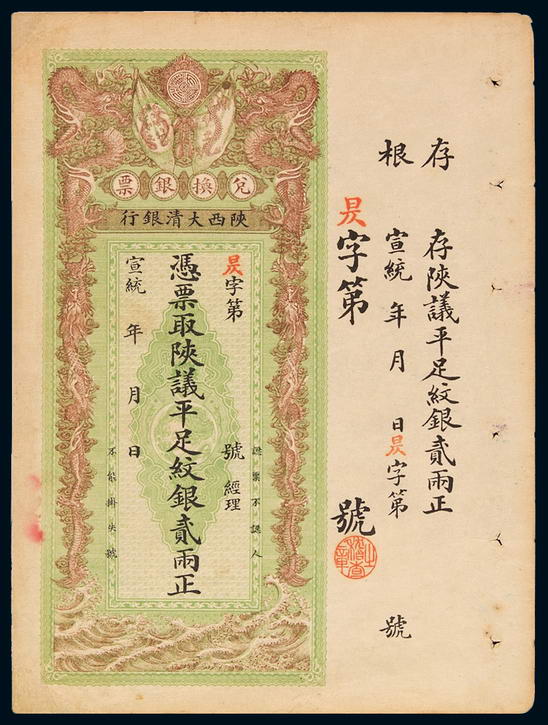 存根
存陜議平足紋銀貳兩正
宣統 年 月 日昃字第 號
昃字第 號
兌換銀票
陜西大清銀行
昃字第 號 經理
憑票取陜議平足紋銀貳兩正
宣統 年 月 日
認票不認人
不能掛失號